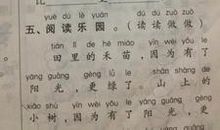 yuè dú lè yuán dú dú zuò zuò
五、阅读乐园。(读读做做)
tián lǐ de hé miáo yīn wèi yǒu le
田里的禾苗，因为有了
yáng guāng gèng lǜ le shān shàng de
阳光，更绿了。山上的
xiǎo shù yīn wèi yǒu le yáng guāng gèng
小树，因为有了阳光，更